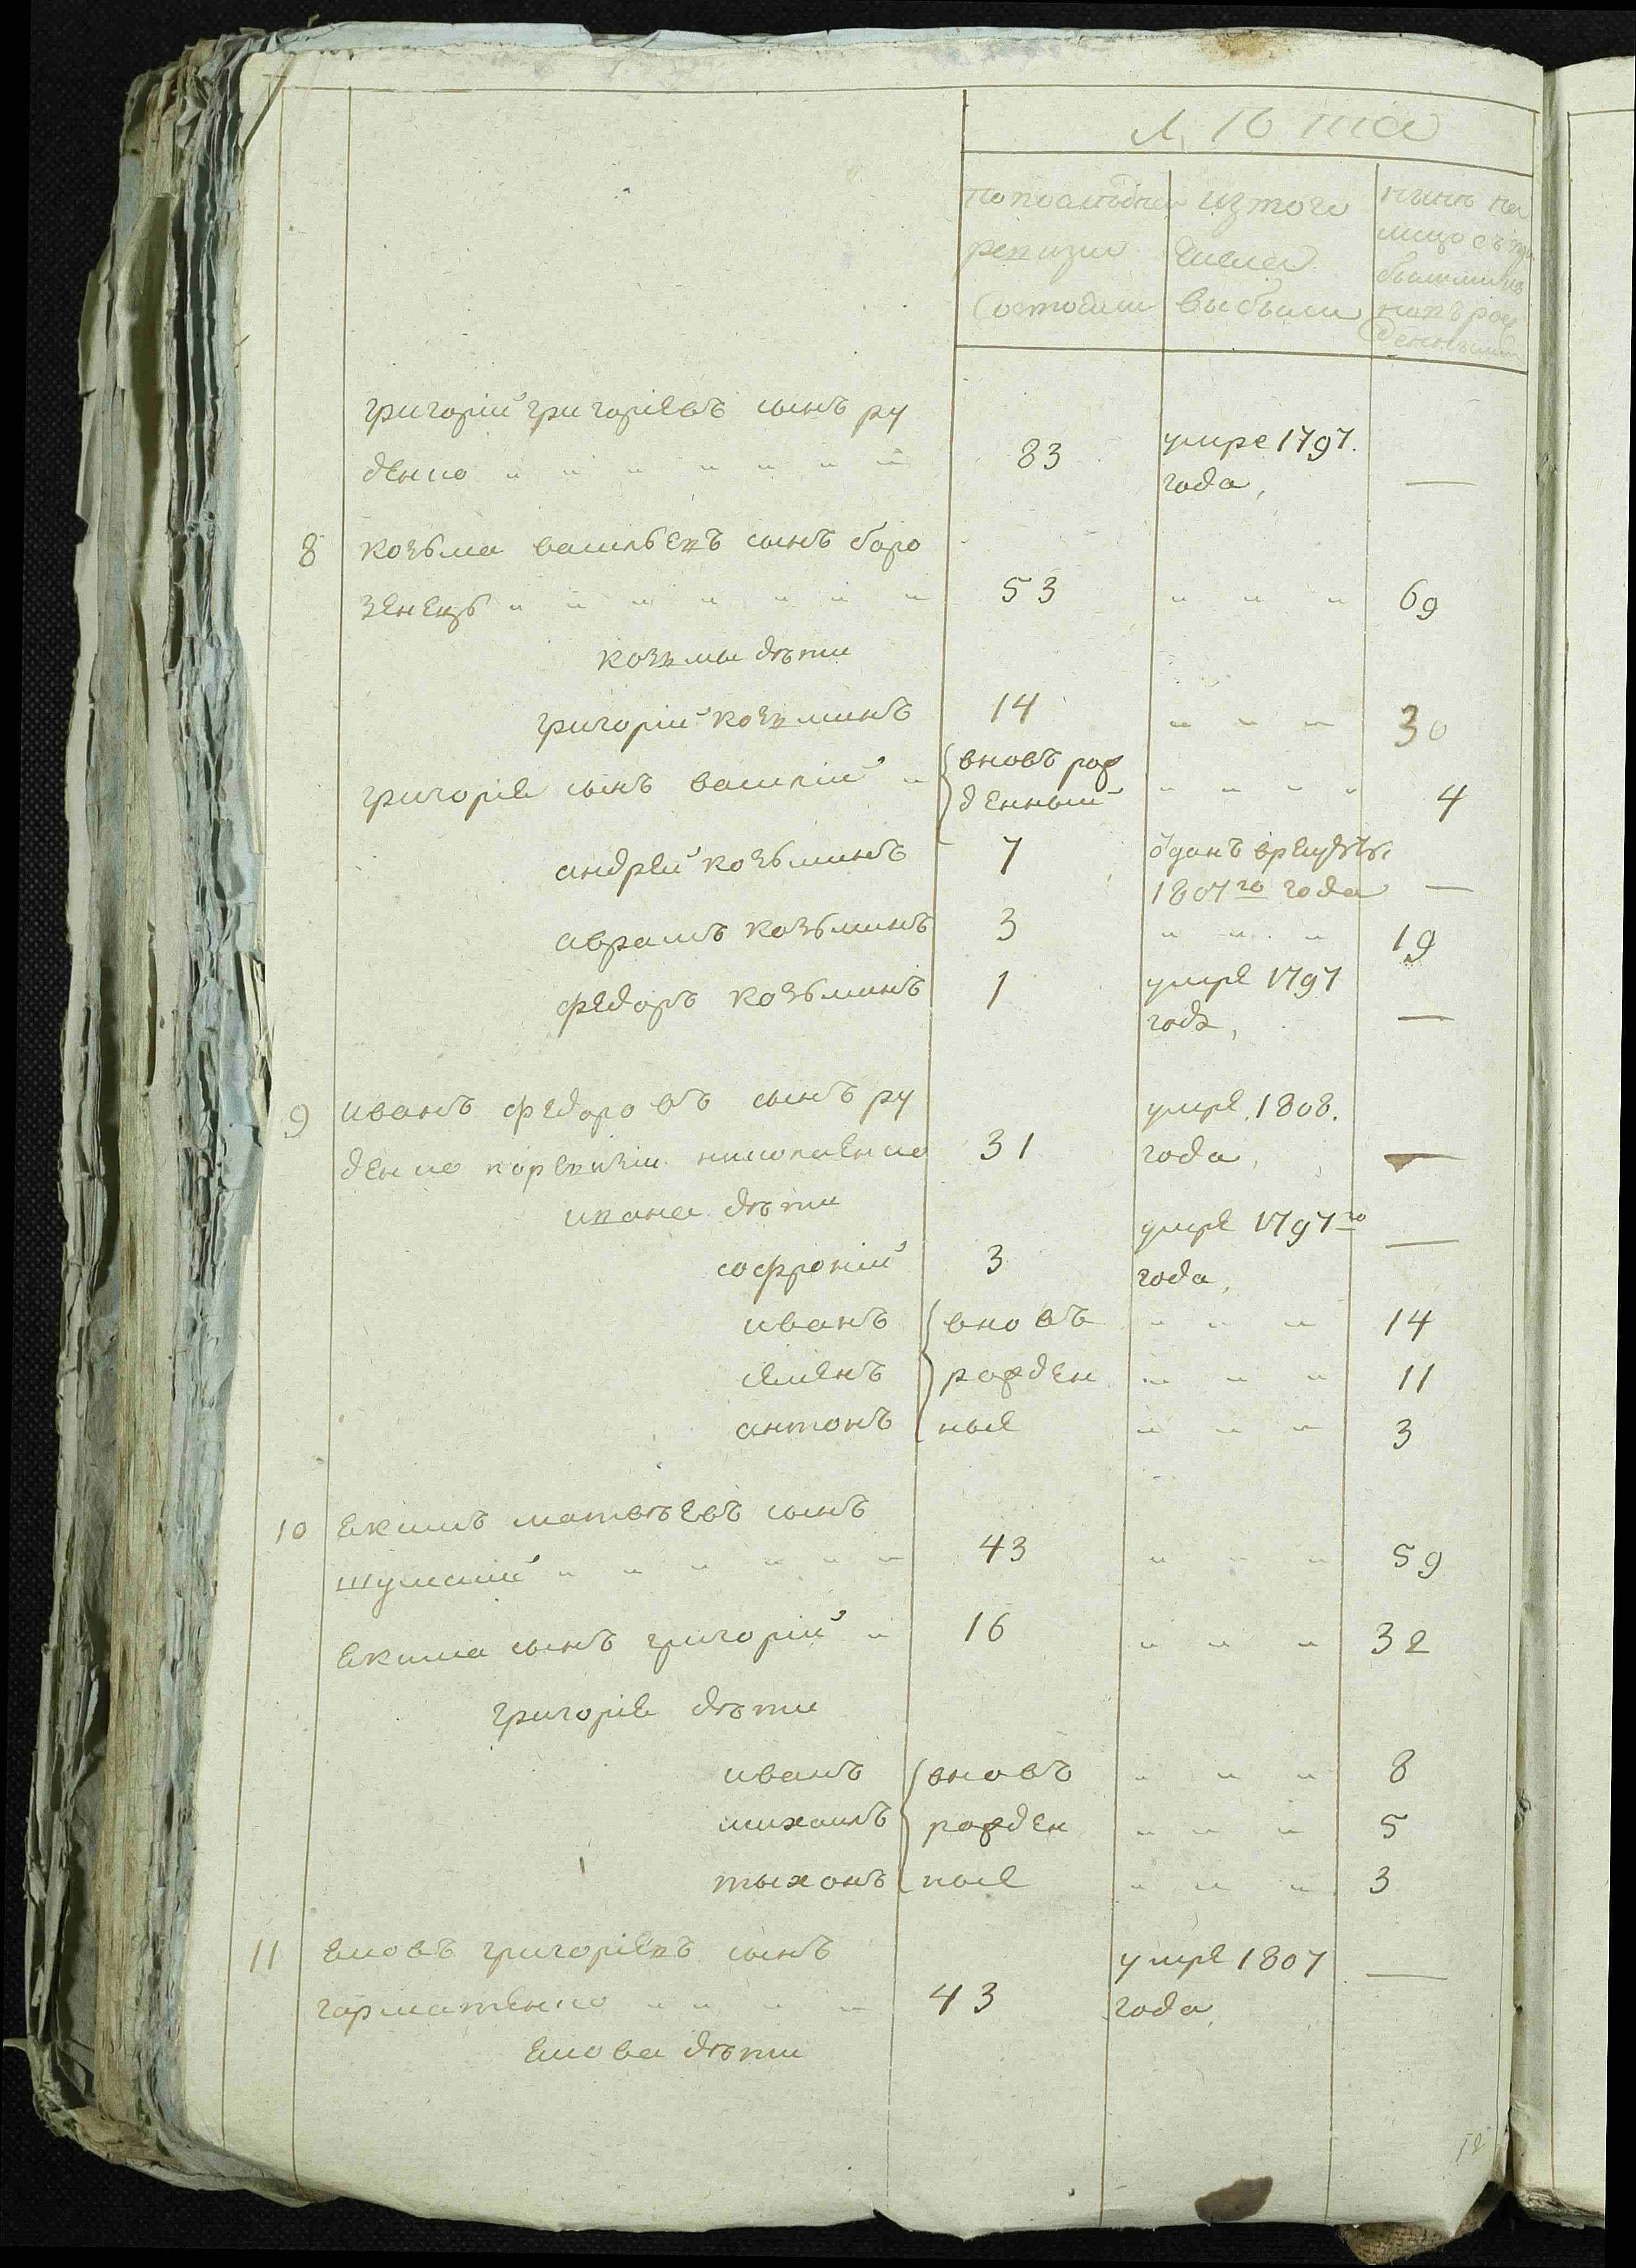 Лѣта
по послѣдней ревизіи состояли
изтого числа выбыли
нынѣ на лицо съ при былыми и новъ рож деннымы
григорій григоріевъ сынъ ру
денко 83 умре 1797. года, —
8 козьма васильевъ сынъ боро
зенецъ 53 " " " 69
козьмы дѣти
григорій козьминъ 14 " " " 30
григоріе сынъ василій вновъ рож денный " " " " 4
андрей козьминъ 7 ѿданъ врекруты 1807го года —
аврамъ козьминъ 3 " " " 19
федоръ козьминъ 1 умре 1797 года, —
9 иванъ федоровъ сынъ ру
денко поревизіи николаенко 31 умре 1808. года, —
ивана дѣти
софроній 3 умре 1797го года, —
иванъ вновъ " " " 14
семенъ рожден " " " 11
антонъ ные " " " 3
10 екимъ матвѣевъ сынъ
шумскій 43 " " " 59
екима сынъ григорій 16 " " " 32
григоріе дѣти
иванъ вновъ " " " 8
михаилъ рожден " " " 5
тыхонъ ные " " " 3
11 григоріевъ сынъ
гарматенко 43 умре 1807 года, —
дѣти
12